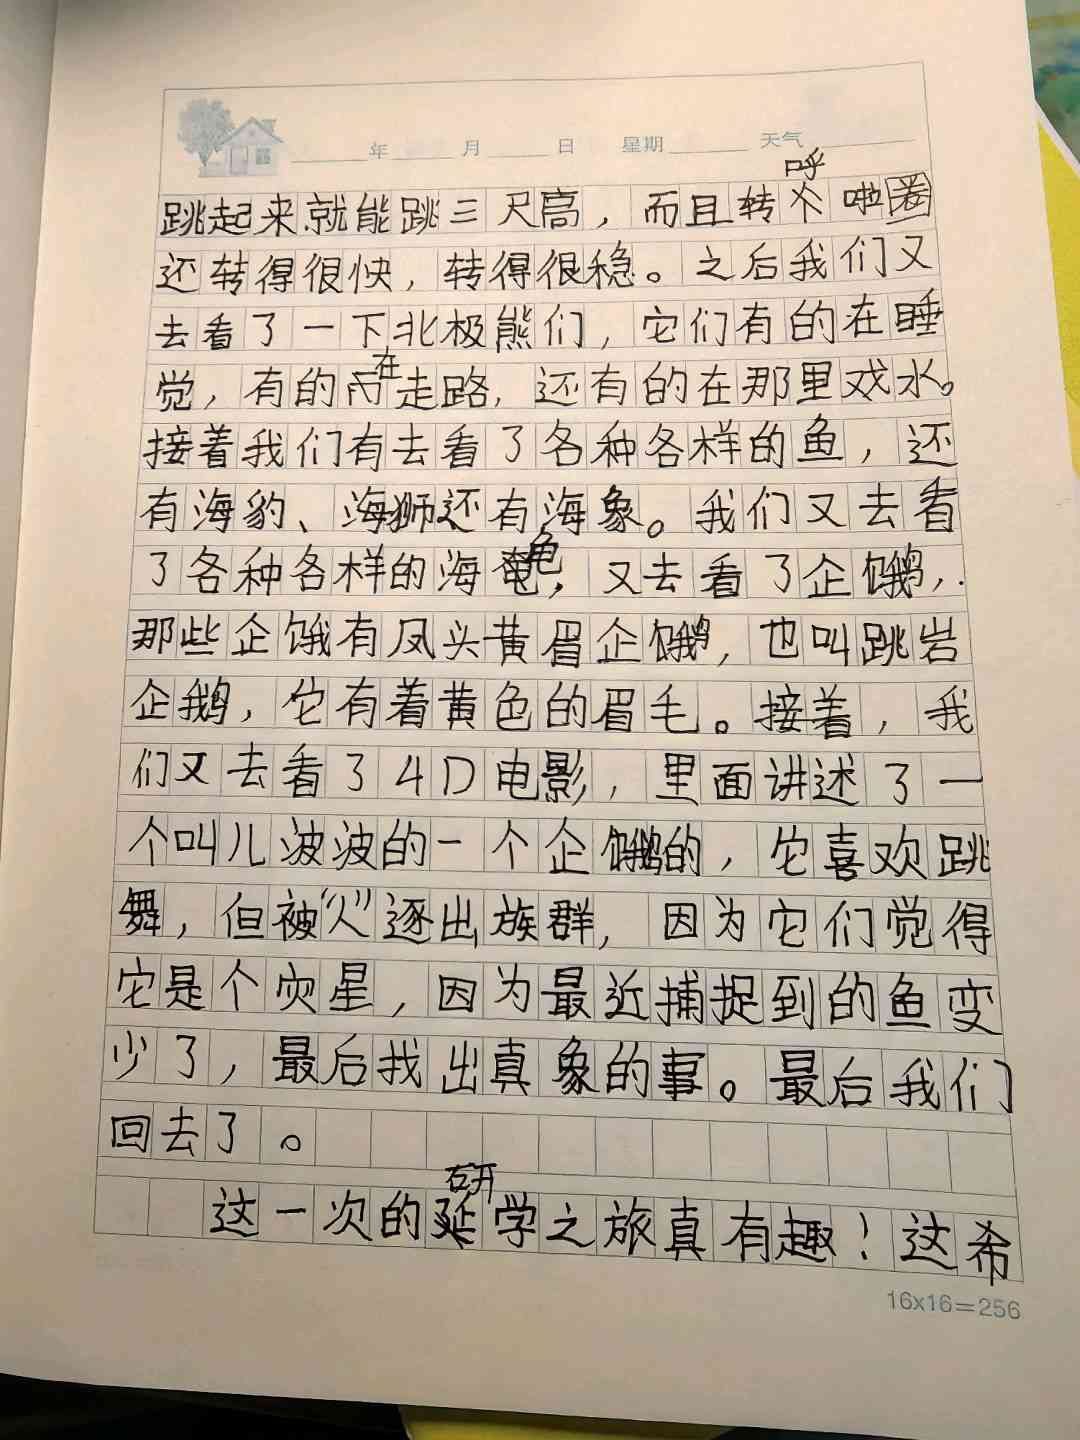 年 月 日 星期 天气
跳起来就能跳三尺高，而且转呼啦圈
还转得很快，转得很稳。之后我们又
去看了一下北极熊们，它们有的在睡
觉，有的在走路，还有的在那里戏水。
接着我们有去看了各种各样的鱼，还
有海豹、海狮还有海象。我们又去看
了各种各样的海龟，又去看了企鹅，
那些企饿有凤头黄眉企鹅，也叫跳岩
企鹅，它有着黄色的眉毛。接着，我
们又去看了4D电影，里面讲述了一
个叫儿波波的一个企鹅的，它喜欢跳
舞，但被“人”逐出族群，因为它们觉得
它是个灾星，因为最近捕捉到的鱼变
少了，最后找出真象的事。最后我们
回去了。
这一次的研学之旅真有趣！这希
16x16=256